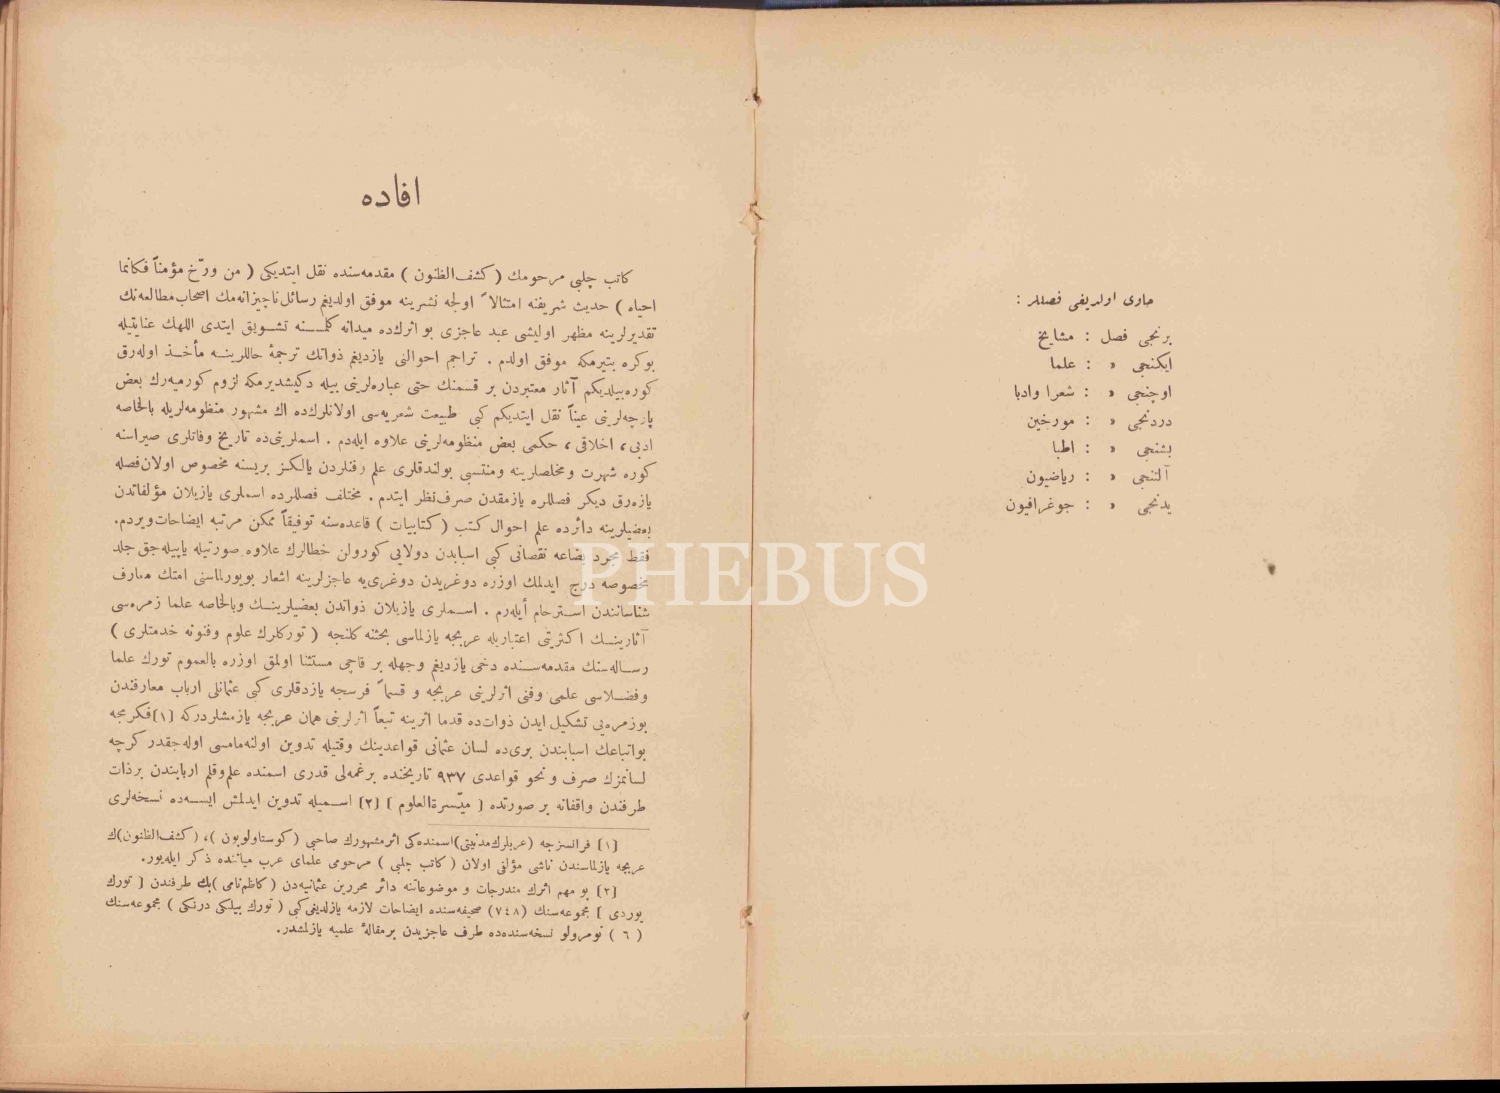 حاوى اولديغى فصللر :
برنجى فصل : مشايخ
ايكنجى « : علما
اوچنجى « : شعرا وادبا
دردنجى « : مورخين
بشنجى « : اطبا
آلتنجى « : رياضيون
يدنجى « : جوغرافيون
افاده
كاتب چلبى مرحومك ( كشف‌الظنون ) مقدمه‌سنده نقل ايتديكى ( من ورّخ مؤمناً فكانما
احياه ) حديث شريفنه امتثالاً اولجه نشرينه موفق اولديغم رسائل ناچيزانه‌مك اصحاب مطالعه‌نك
تقديرلرينه مظهر اوليشى عبد عاجزى بو اثرك‌ده ميدانه كلمسنه تشويق ايتدى اللهك عنايتيله
بوكره بتيرمكه موفق اولدم . تراجم احوالنى يازديغم ذواتك ترجمهٔ حاللرينه مأخذ اوله‌رق
كوره‌بيلديكم آثار معتبردن بر قسمنك حتى عباره‌لرينى بيله دكيشديرمكه لزوم كورميه‌رك بعض
پارچه‌لرينى عيناً نقل ايتديكم كبى طبيعت شعريه‌سى اولانلرك‌ده اك مشهور منظومه‌لريله بالخاصه
ادبى ، اخلاقى ، حكمى بعض منظومه‌لرينى علاوه ايله‌دم . اسملرينى‌ده تاريخ وفاتلرى صيراسنه
كوره شهرت ومخلصلرينه ومنتسى بولندقلرى علم وفنلردن يالكز بريسنه مخصوص اولان فصله
يازه‌رق ديكر فصللره يازمقدن صرف‌نظر ايتدم . مختلف فصللرده اسملرى يازيلان مؤلفاتدن
بعضيلرينه دائرده علم احوال كتب ( كتابيات ) قاعده‌سنه توفيقاً ممكن مرتبه ايضاحات ويردم.
فقط مجرد بضاعه نقصانى كبى اسبابدن دولايى كورولن خطالرك علاوه صورتيله ياپيله‌جق جلد
مخصوصه درج ايدلمك اوزره دوغريدن دوغرى‌يه عاجزلرينه اشعار بويورلماسنى امتك معارف
شناساتندن استرحام أيله‌رم . اسملرى يازيلان ذواتدن بعضيلرينك وبالخاصه علما زمره‌سى
آثارينك اكثريتى اعتباريله عربجه يازلماسى بحثنه كلنجه ( توركلرك علوم وفنونه خدمتلرى )
رساله‌سنك مقدمه‌سنده دخى يازديغم وجهله بر قاچى مستثنا اولمق اوزره بالعموم تورك علما
وفضلاسى علمى وفنى اثرلرينى عربجه و قسماً فرسجه يازدقلرى كبى عثمانلى ارباب معارفندن
بوزمره‌يى تشكيل ايدن ذوات‌ده قدما اثرينه تبعاً اثرلرينى همان عربجه يازمشلردركه [١] فكرمجه
بواتباعك اسبابندن برى‌ده لسان عثمانى قواعدينك وقتيله تدوين اولنه‌مامسى اوله‌جقدر كرچه
لسانمزك صرف و نحو قواعدى ٩٣٧ تاريخنده برغمه‌لى قدرى اسمنده علم‌وقلم اربابندن برذات
طرفندن واقفانه بر صورتده [ ميّسرةالعلوم ] [٢] اسميله تدوين ايدلمش ايسه‌ده نسخه‌لرى
[١] فرانسزجه (عربلرك‌مدنيتى) اسمنده‌كى اثرمشهورك صاحبى (كوستاولوبون )، (كشف‌الظنون)ك
عربجه يازلماسندن ناشى مؤلفى اولان ( كاتب چلبى ) مرحومى علماى عرب مياننده ذكر ايله‌يور.
[٢] بو مهم اثرك مندرجات و موضوعاتنه دائر محررين عثمانيه‌دن (كاظم‌نامى )بك طرفندن [ تورك
يوردى ] مجموعه‌سنك (٧٤٨) صحيفه‌سنده ايضاحات لازمه يازلديغى‌كبى ( تورك بيلكى درنكى ) مجموعه‌سنك
( ٦ ) نومرولو نسخه‌سنده‌ده طرف عاجزيدن برمقالهٔ علميه يازلمشدر.
PHEBUS